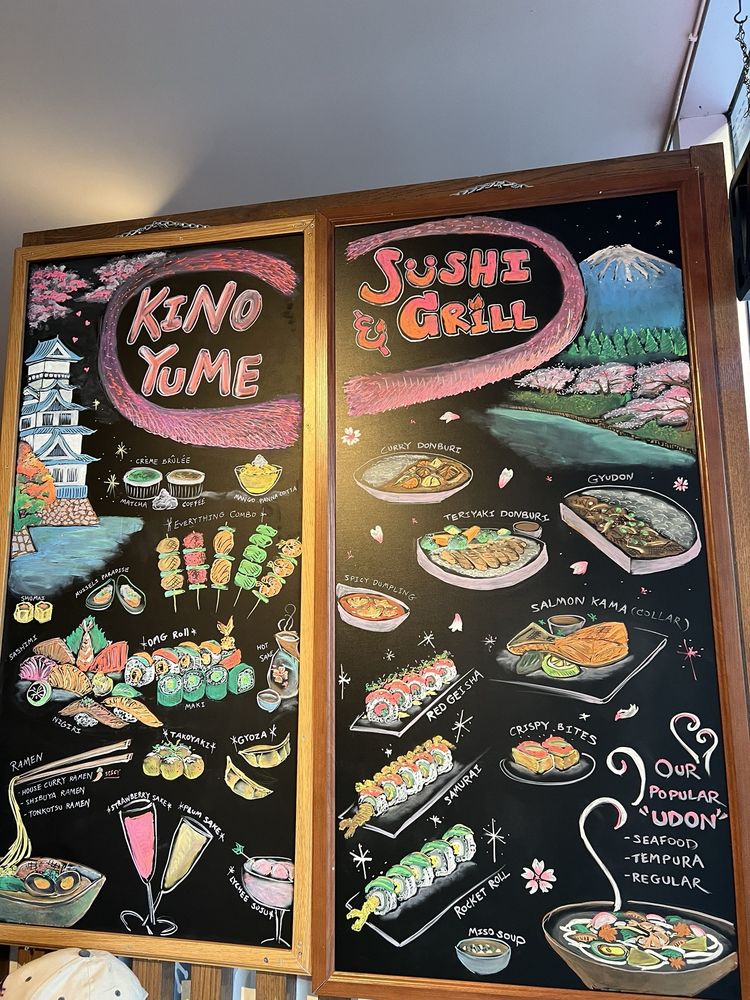 KINO
YUME
CRÈME BRÛLÉE
MATCHA
COFFEE
MANGO PANNA COTTA
*EVERYTHING COMBO*
SHUMAI
MUSSELS PARADISE
SASHIMI
*OMG ROLL*
HOT
SAKE
MAKI
NIGIRI
*TAKOYAKI*
*GYOZA*
RAMEN
-HOUSE CURRY RAMEN SPICY
-SHIBUYA RAMEN
-TONKOTSU RAMEN
*STRAWBERRY SAKE*
*PLUM SAKE*
SUSHI
& GRILL
CURRY DONBURI
GYUDON
TERIYAKI DONBURI
SPICY DUMPLING
SALMON KAMA (COLLAR)
RED GEISHA
CRISPY BITES
SAMURAI
OUR
POPULAR
"UDON"
-SEAFOOD
-TEMPURA
-REGULAR
ROCKET ROLL
MISO SOUP